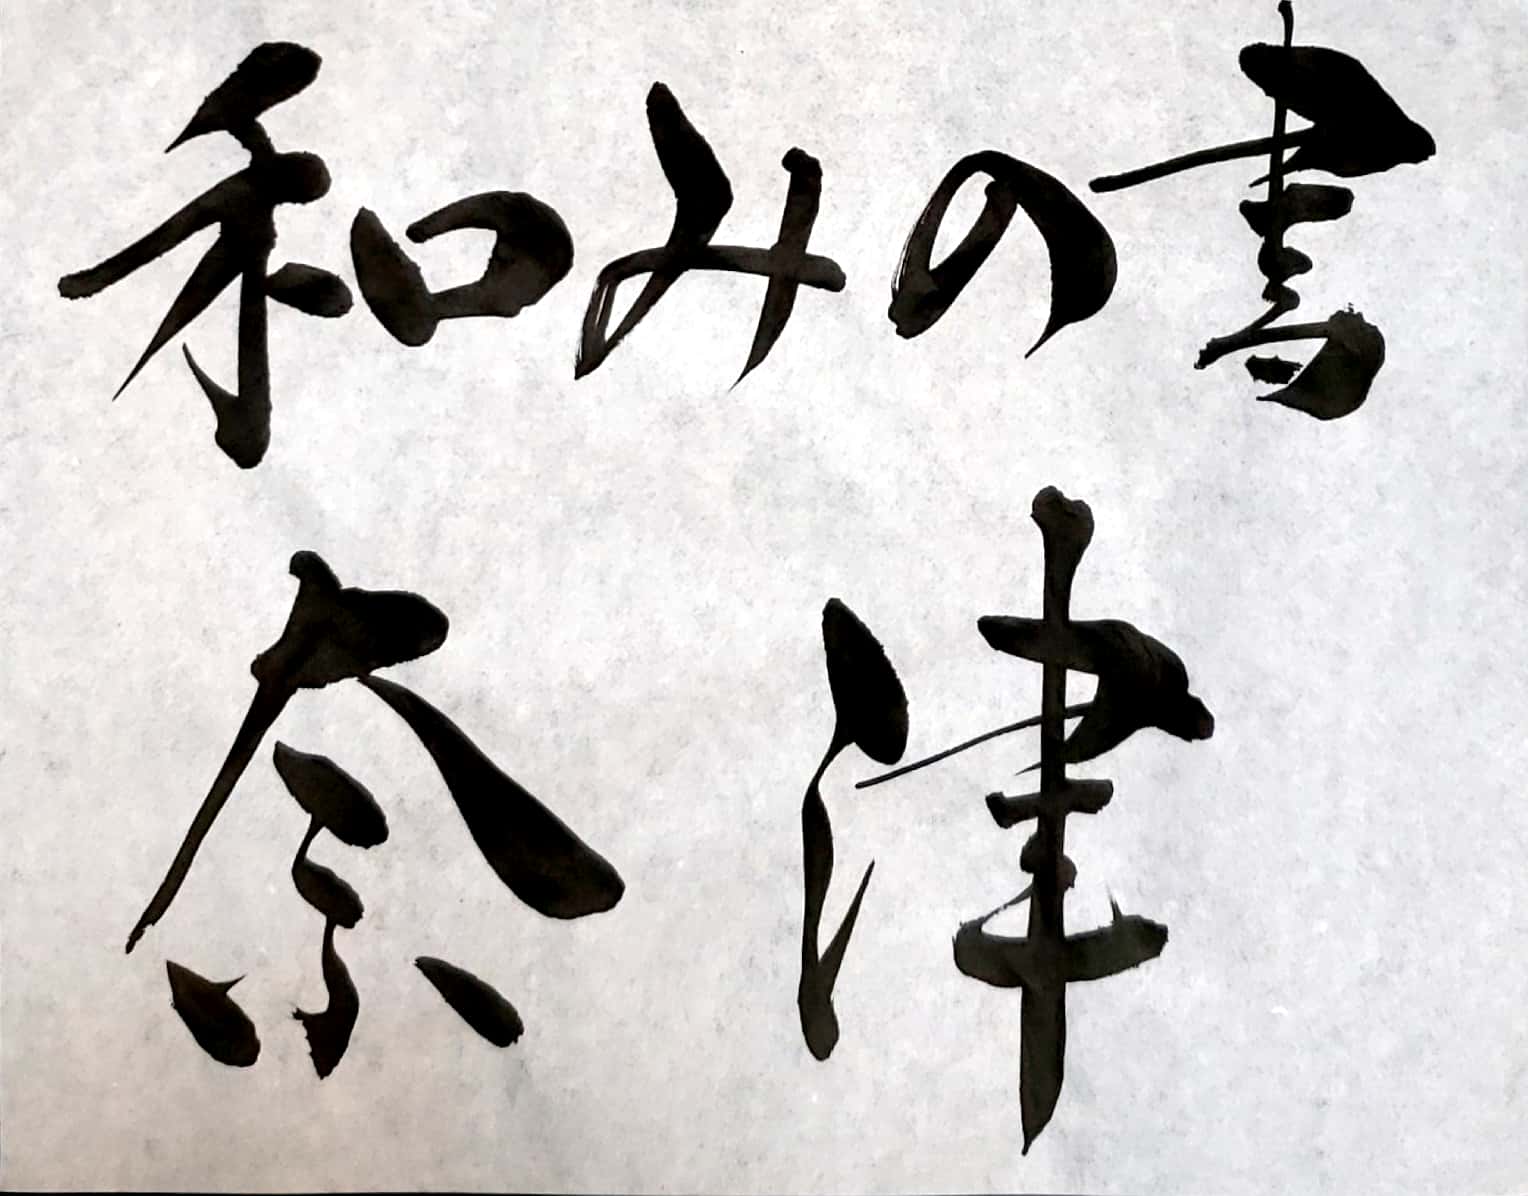 和みの書
奈津